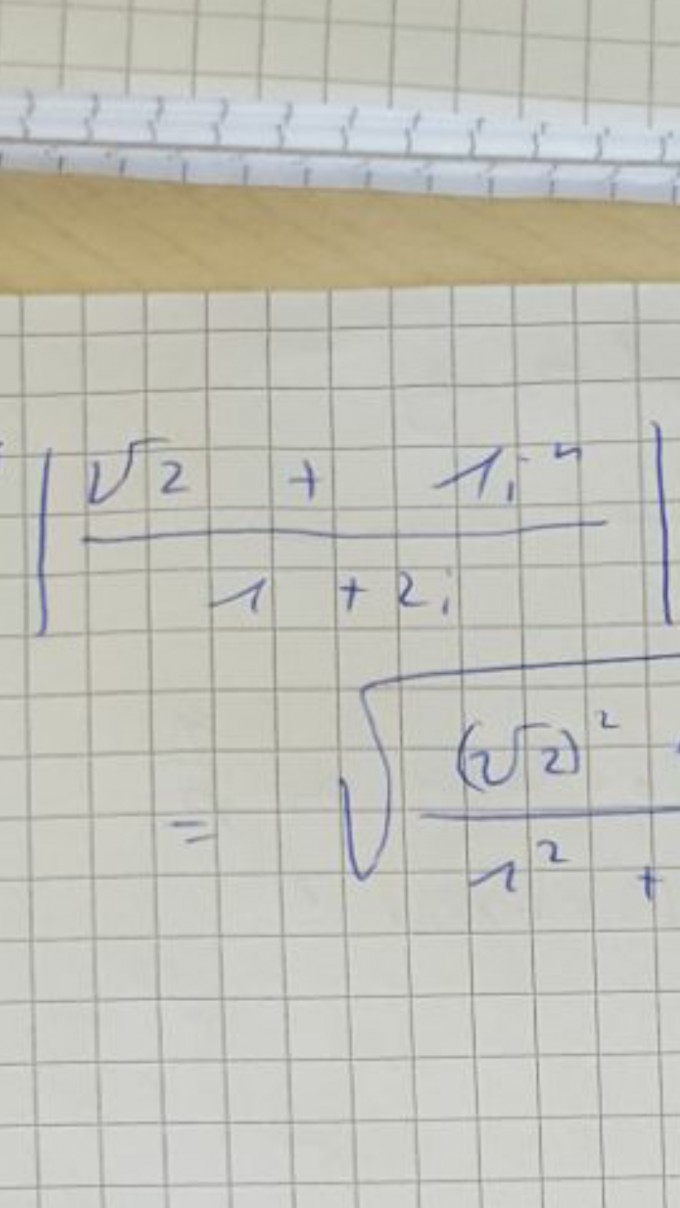 | √2 + 1i^n |
1 + 2i
= √ (√2)²
1² +